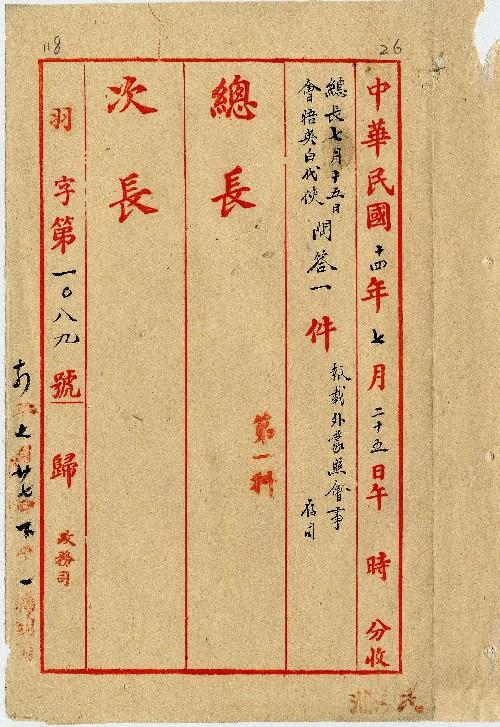 118
26
中華民國十四年七月二十五日午 時 分收
總長七月十五日
會晤英白代使 問答一件 報載外蒙照會事 存司
第一科
總長
次長
羽字第一〇八九號歸政務司